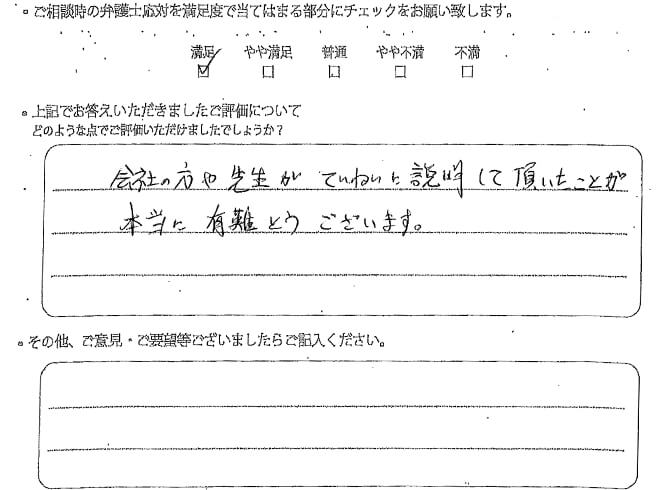 。ご相談時の弁護士応対を満足度で当てはまる部分にチェックをお願い致します。
満足 やや満足 普通 やや不満 不満
☑ □ □ □ □
。上記でお答えいただきましたご評価について
どのような点でご評価いただけましたでしょうか？
会社の方や先生がていねいに説明して頂いたことが
本当に有難とうございます。
。その他、ご意見・ご要望等ございましたらご記入ください。